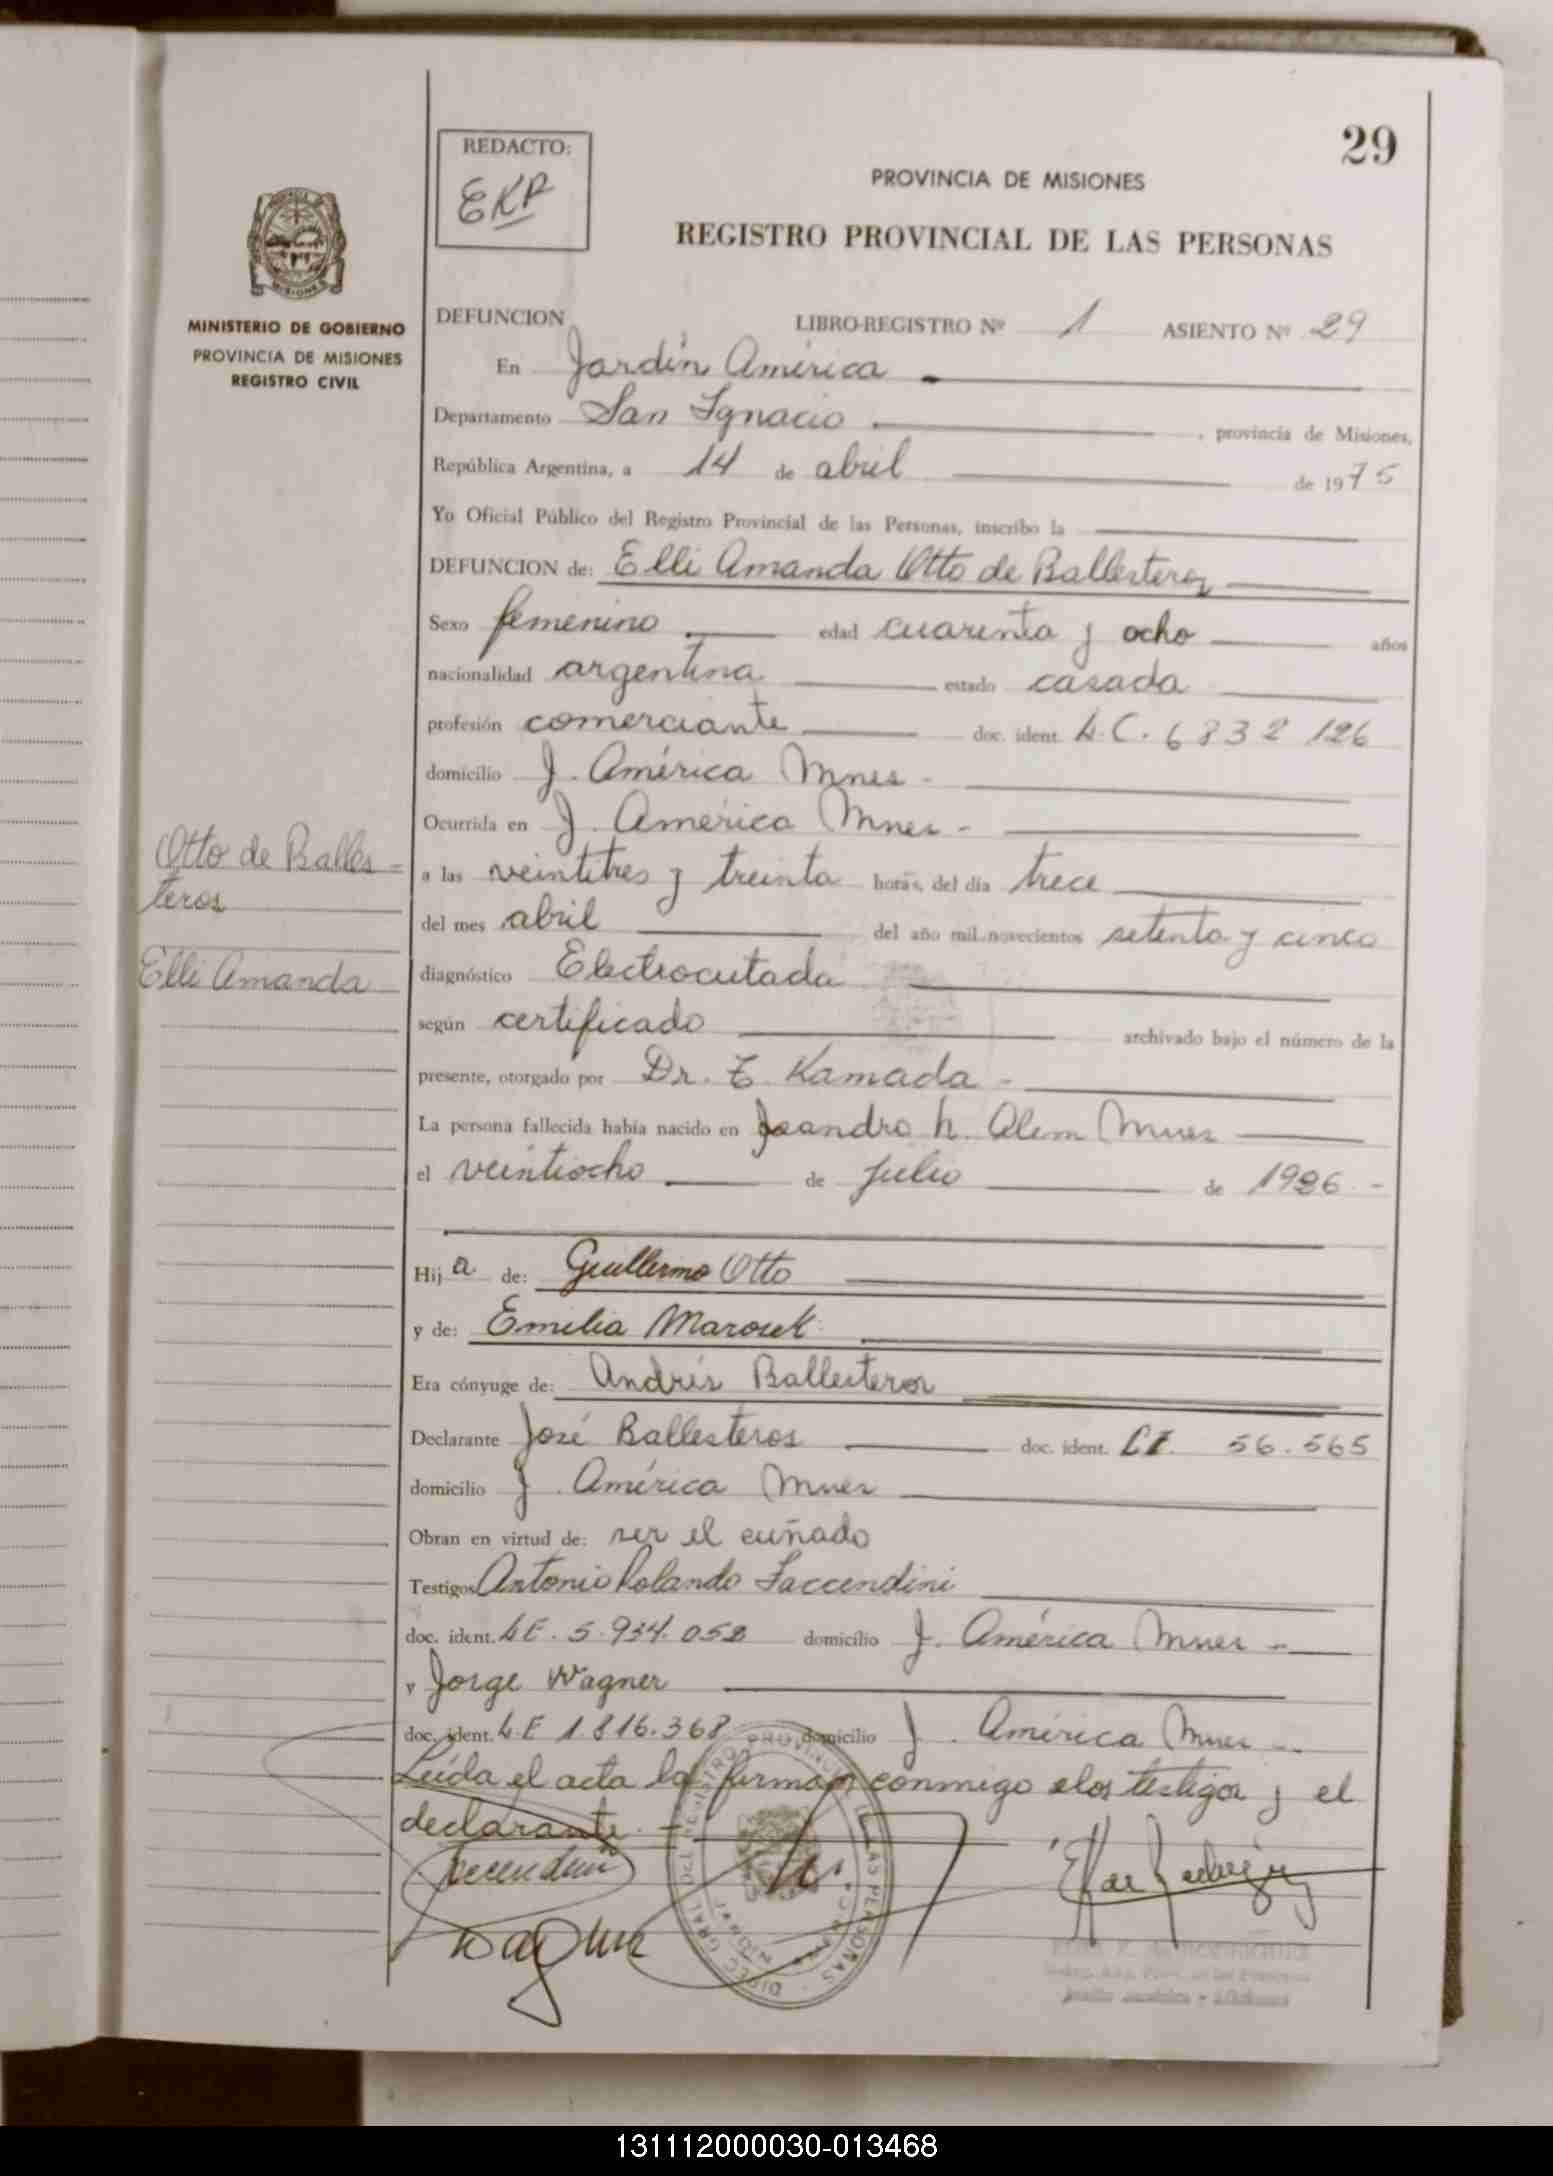 29
REDACTO:
EKR
PROVINCIA DE MISIONES
REGISTRO PROVINCIAL DE LAS PERSONAS
MINISTERIO DE GOBIERNO
PROVINCIA DE MISIONES
REGISTRO CIVIL
DEFUNCION LIBRO-REGISTRO Nº 1 ASIENTO Nº 29
En Jardín América
Departamento San Ignacio, provincia de Misiones,
República Argentina, a 14 de abril de 1975
Yo Oficial Público del Registro Provincial de las Personas, inscribo la
DEFUNCION de: Elli Amanda Otto de Ballesteros
Sexo femenino edad cuarenta y ocho años
nacionalidad argentina estado casada
profesión comerciante doc. ident. L.C. 6832126
domicilio J. América Mnes -
Ocurrida en J. América Mnes -
Otto de Balles=
teros
Elli Amanda
a las veintitres y treinta horas, del día trece
del mes abril del año mil novecientos setenta y cinco
diagnóstico Electrocutada
según certificado archivado bajo el número de la
presente, otorgado por Dr. T. Kamada -
La persona fallecida había nacido en Leandro N. Alem Mnes
el veintiocho de julio de 1926 -
Hija de: Guillermo Otto
y de: Emilia Marosek
Era cónyuge de: Andrés Ballesteros
Declarante José Ballesteros doc. ident. CI. 56.565
domicilio J. América Mnes
Obran en virtud de: ser el cuñado
Testigos Antonio Rolando Faccendini
doc. ident. L.E. 5.934.052 domicilio J. América Mnes -
y Jorge Wagner
doc. ident. L.E 1.816.368 domicilio J. América Mnes -
Leída el acta la firman conmigo los testigos y el
declarante. -
Faccendini
Wagner
DIREC. GRAL. DEL REGISTRO PROVINCIAL DE LAS PERSONAS
131112000030-013468